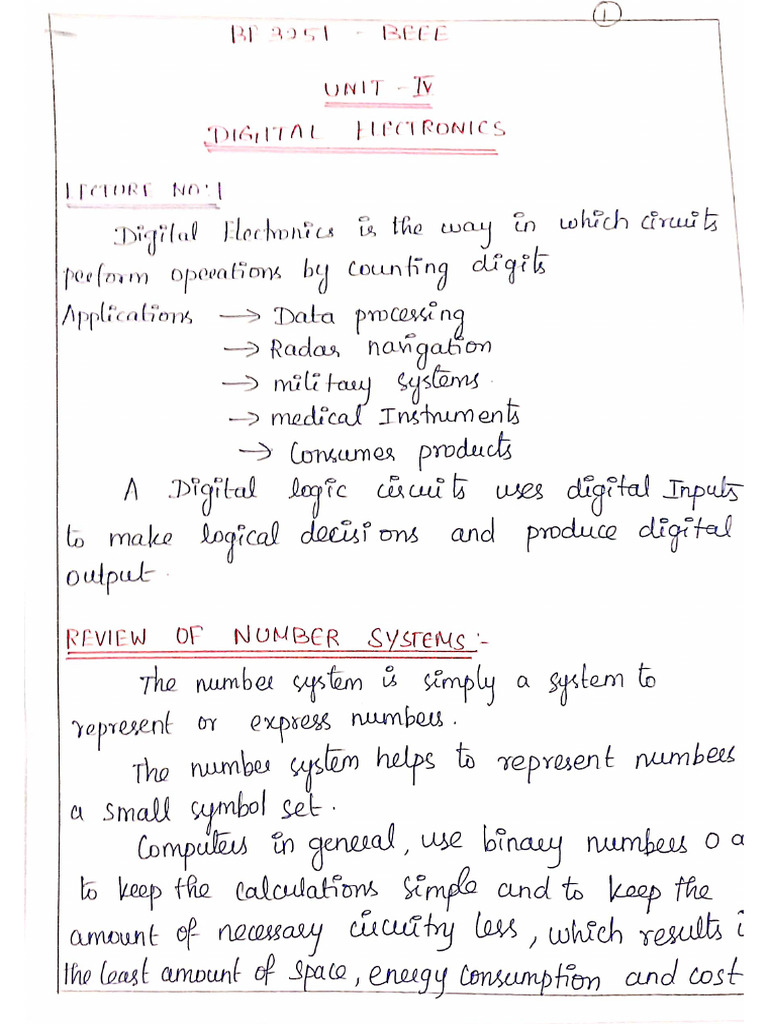 1
BE 3251 - BEEE
UNIT - IV
DIGITAL ELECTRONICS
LECTURE NO: 1
Digital Electronics is the way in which circuits
perform operations by counting digits
Applications → Data processing
→ Radar navigation
→ military systems.
→ medical Instruments
→ Consumer products
A Digital logic circuits uses digital Inputs
to make logical decisions and produce digital
output.
REVIEW OF NUMBER SYSTEMS:-
The number system is simply a system to
represent or express numbers.
The number system helps to represent numbers
a small symbol set.
Computers in general, use binary numbers 0 a
to keep the calculations simple and to keep the
amount of necessary circuitry less, which results i
the least amount of space, energy consumption and cost